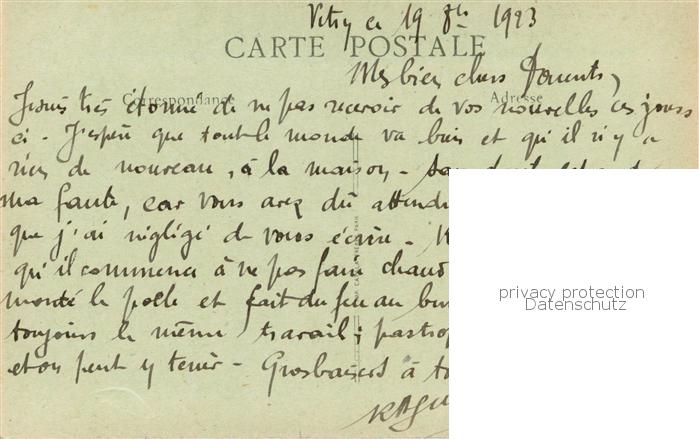 Vitry ce 19 8bre 1923
CARTE POSTALE
Mes bien chers Parents,
Correspondance
Adresse
Je suis très étonné de ne pas recevoir de vos nouvelles ces jours
ci - J'espère que tout le monde va bien et qu'il n'y a
rien de nouveau, à la maison -
ma faute, car vous avez dû attendre
que j'ai négligé de vous écrire -
qu'il commence à ne pas faire chaud
monté le poêle et fait du feu au bur
toujours le même travail; pas trop
et on peut y tenir - Gros baisers à to
privacy protection
Datenschutz